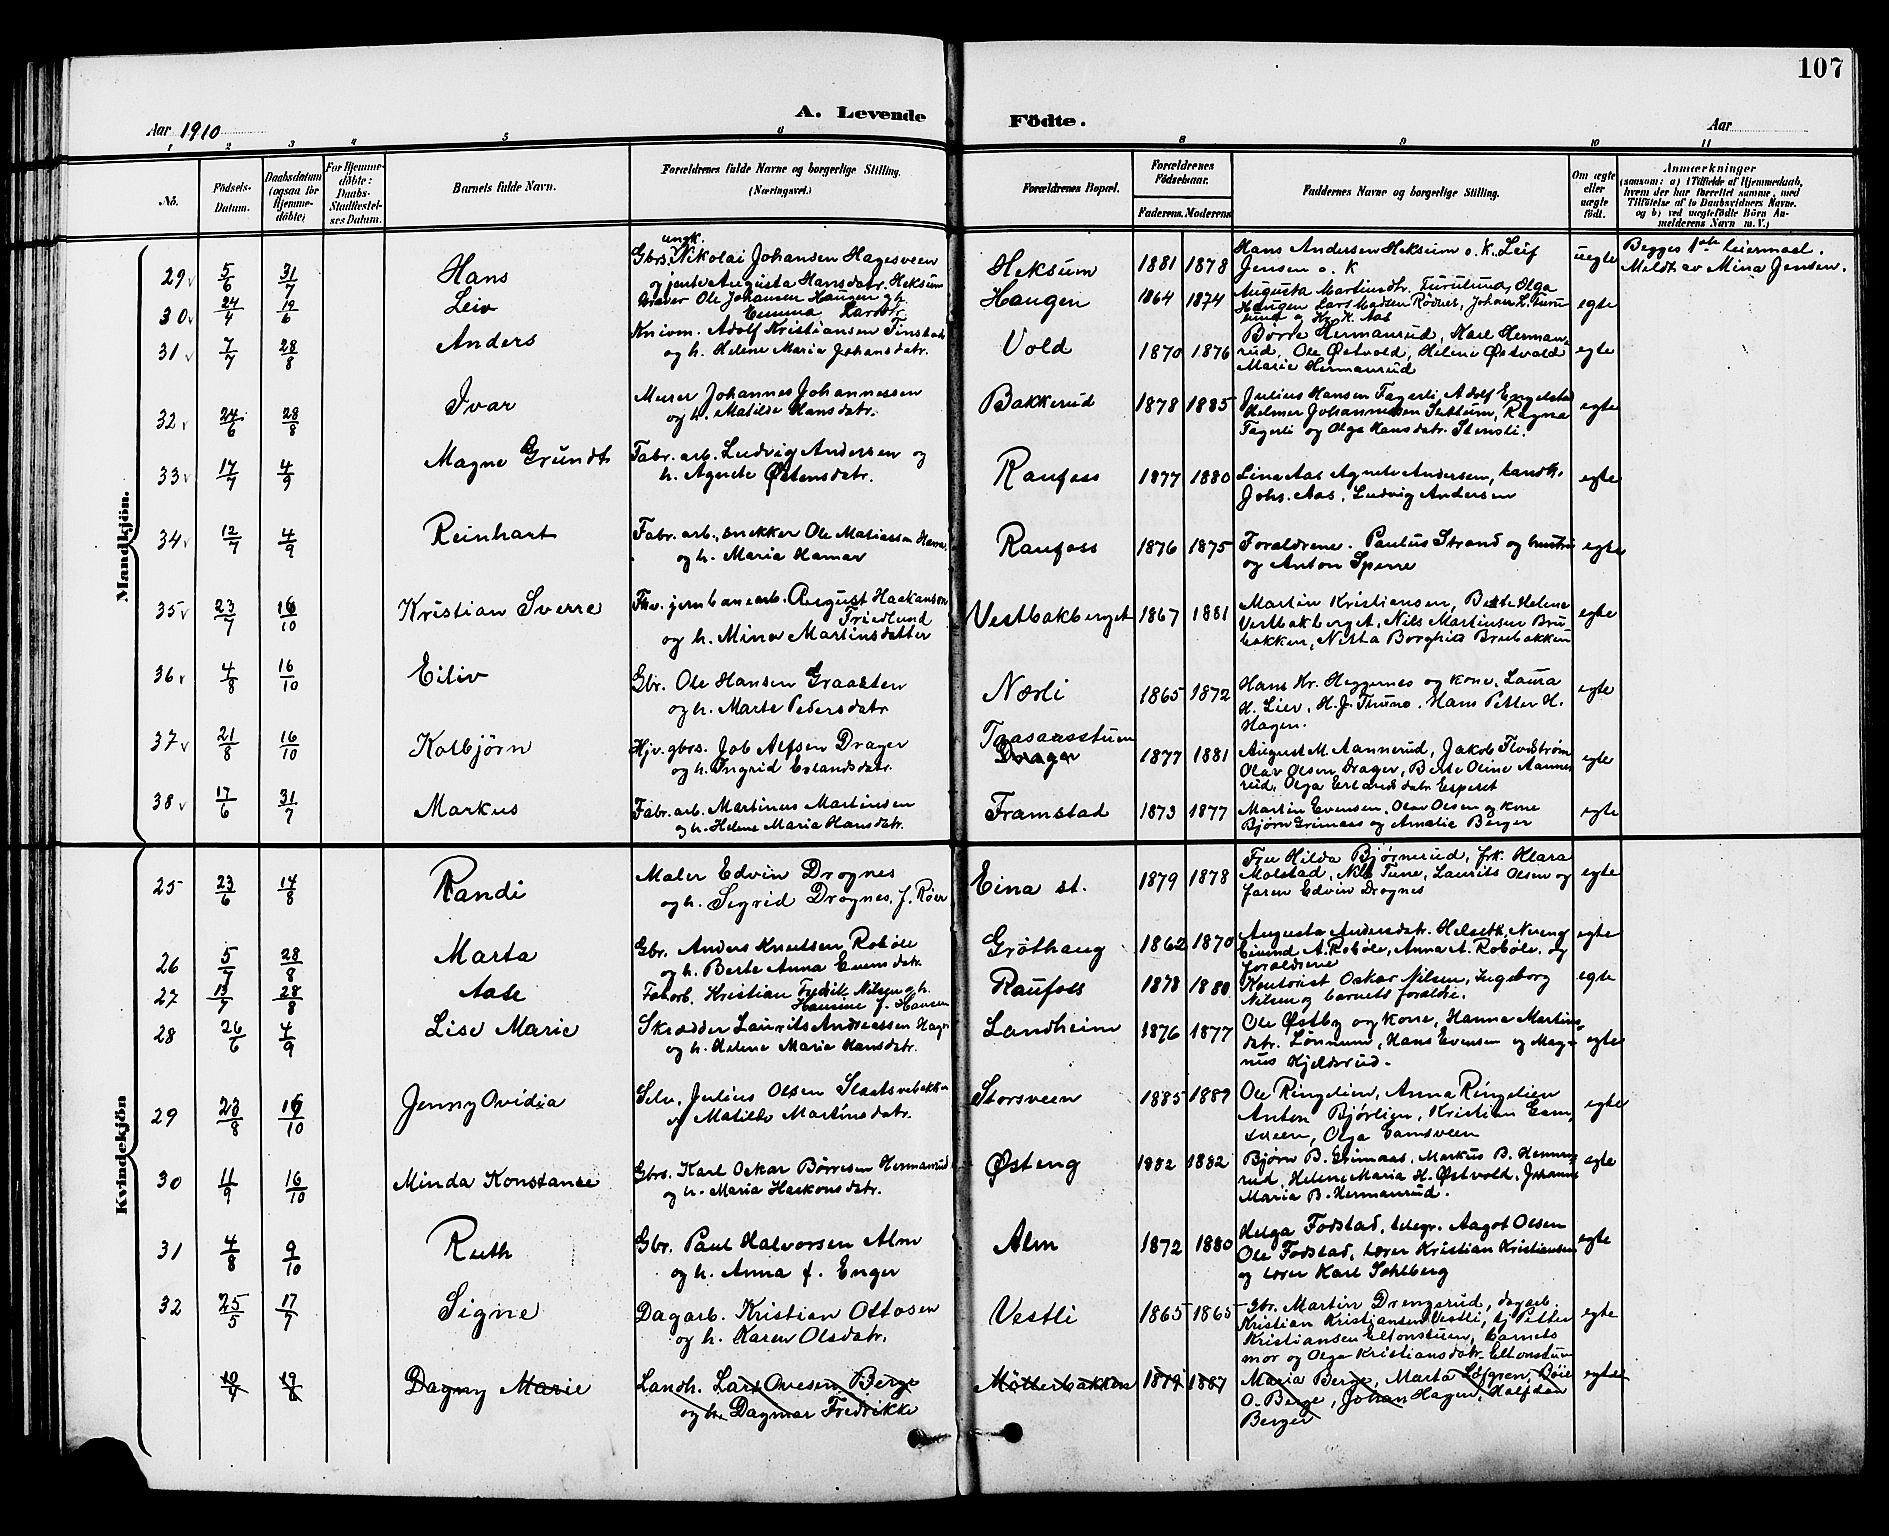 107
A. Levende Födte.
Aar 1910
Aar
1 2 3 4 5 6 8 9 10 11
No.
Födsels-Datum.
Daabsdatum (ogsaa for Hjemme-döbte)
For Hjemme-döbte: Daabs-Stadfæstel-ses Datum.
Barnets fulde Navn.
Forældrenes fulde Navne og borgerlige Stilling.
(Næringsvei.)
Forældrenes Bopæl.
Forældrenes Födselsaar.
Faderens. Moderens.
Faddernes Navne og borgerlige Stilling.
Om ægte eller uægte födt.
Anmærkninger
(saasom: a) i Tilfælde af Hjemmedaab,
hvem der har forrettet samme, med
Tilföielse af to Daabsvidners Navne.
og b) ved uægtefödte Börn An-
melderens Navn m. V.)
Mandkjön.
29 5/6 31/7 Hans
Gbrs. ungk. Nikolai Johansen Hagesveen
og jente Augusta Hansdatr. Heksum
Heksum 1881 1878
Hans Andersen Heksum o. K. Leif
Jensen o. K
uegte
Begges 1ste leiermaal.
Meldt av Mina Jensen.
30 24/4 19/6 Leiv
Graver Ole Johansen Haugen og h.
Emma Larsdtr.
Haugen 1864 1874
Augusta Martinsdtr. Turulund, Olga
Haugen, Lars Madsen Rödnes, Johan L. Turu
lund og K. Aas
egte
31 7/7 28/8 Anders
Knivm. Adolf Kristiansen Finstad
og h. Helene Maria Johansdatr.
Vold 1870 1876
Børre Hermanrud, Karl Herman-
rud, Ole Østvold, Helene Østvold
Marie Hermanrud
egte
32 24/6 28/8 Ivar
Murer Johannes Johannessen
og h. Matilde Hansdatr.
Bakkerud 1878 1885
Julius Hansen Fagerli, Adolf Engelstad
Helmer Johannessen Sattum, Ragna
Fagerli og Olga Hansdatr. Stensli.
egte
33 17/7 4/9 Magne Grundt
Fabr. arb. Ludvig Andersen og
h. Agnete Østensdatr.
Raufoss 1877 1880
Lina Aas Agnete Andersen, kandh.
Johs. Aas, Ludvig Andersen
egte
34 12/7 4/9 Reinhart
Fabr. arb., snekker Ole Matiassen Hamar
og h. Maria Hamar
Raufoss 1876 1875
Foraldrene. Paulus Strand og hustru
og Anton Sperre
egte
35 23/7 16/10 Kristian Sverre
Fhv. jernbanearb. August Haakanson
Friedlund
og h. Mina Martinsdatter
Vestbakberget 1867 1881
Martin Kristiansen, Berte Helene
Vestbakberget, Nils Martinsen Bru
bakken, Netta Borghild Brubakken
egte
36 4/8 16/10 Eiliv
Gbr. Ole Hansen Graasten
og h. Marte Pedersdatr
Nærli 1865 1872
Hans Kr. Heggernes og kone, Laura
H. Lier, H. J. Thune. Hans Petter H.
Hagen.
egte
37 21/8 16/10 Kolbjörn
Hjv. gbrs. Job Alfsen Drager
og h. Ingrid Erlandsdatr.
Traasaasstuen
Drager 1877 1881
August M. Aannerud, Jakob Flodström
Olav Olsen Drager, Berte Oline Aanne
rud, Olga Erlandsdatr Esperet
egte
38 17/6 31/7 Markus
Fabr. arb. Martinus Martinsen
og h. Helene Maria Hansdatr.
Framstad 1873 1877
Martin Evensen, Olav Olsen og kone
Bjørn Grimaas og Amalie Berger
egte
Kvindekjön
25 23/6 14/8 Randi
Maler Edvin Drognes
og h. Sigrid Drognes, f. Røer
Eina st. 1879 1878
Fru Hilda Bjørnerud, frk. Klara
Molstad, Nils Tune, Laurits Olsen og
faren Edvin Drognes
egte
26 5/7 28/8 Marta
Gbr. Anders Knutsen Robøle
og h. Berte Anna Evensdatr.
Gröthaug 1862 1870
Augusta Andersdatr. Helseth, Nereng
Eivind A. Robøle, Anna A. Robøle. og
foraldrene
egte
27 13/7 28/8 Aase
Fabarb. Kristian Fredrik Nilsen og h.
Hansine f. Hansen
Raufoss 1878 1880
Kontorist Oskar Nilsen, Ingeborg
Nilsen og barnets foraldre.
egte
28 26/6 4/9 Lise Marie
Skrædder Laurits Andreassen Hagen
og h. Helene Maria Hansdatr.
Landheim 1876 1877
Ole Østby og kone, Hanna Martins-
datr. Lønnum, Hans Evensen og Mag-
nus Hjeldsrud.
egte
29 23/8 16/10 Jenny Ovidia
Selv. Julius Olsen Slaatsvebakken
og Matilde Martinsdatr.
Storsveen 1885 1889
Ole Ringelien, Anna Ringelien
Anton Bjørlien, Kristian Gam-
sveen, Olga Gamsveen
egte
30 11/9 16/10 Minda Konstanse
Gbrs. Karl Oskar Børresen Hermanrud
og h. Maria Haakonsdatr.
Østeng 1882 1882
Bjørn B. Grimaas, Markus B. Herman-
rud, Helene Maria H. Østvold, Johanne
Maria B. Hermanrud.
egte
31 4/8 9/10 Ruth
Gbr. Paul Halvorsen Alm
og h. Anna f. Enger
Alm 1872 1880
Helga Fodstad, telegr. Aagot Olsen
Ole Fodstad, lærer Kristian Kristiansen
og lærer Karl Sohlberg
egte
32 25/5 17/7 Signe
Dagarb. Kristian Ottosen
og h. Karen Olsdatr.
Vestli 1865 1865
Gbr. Martin Drengsrud, dagarb.
Kristian Kristiansen Vestli, tj Petter
Kristiansen Eltonstuen, barnets
mor og Olga Kristiansdatr. Eltonstuen
egte
10/4 19/6 Dagny Marie
Landh. Lars Ovesen Berge
og h. Dagmar Fredrikke
Møllerbakken 1887
Maria Berge, Marta Løfgren, Bøie
O. Berge, Johan Hagen, Halfdan
Berger
egte